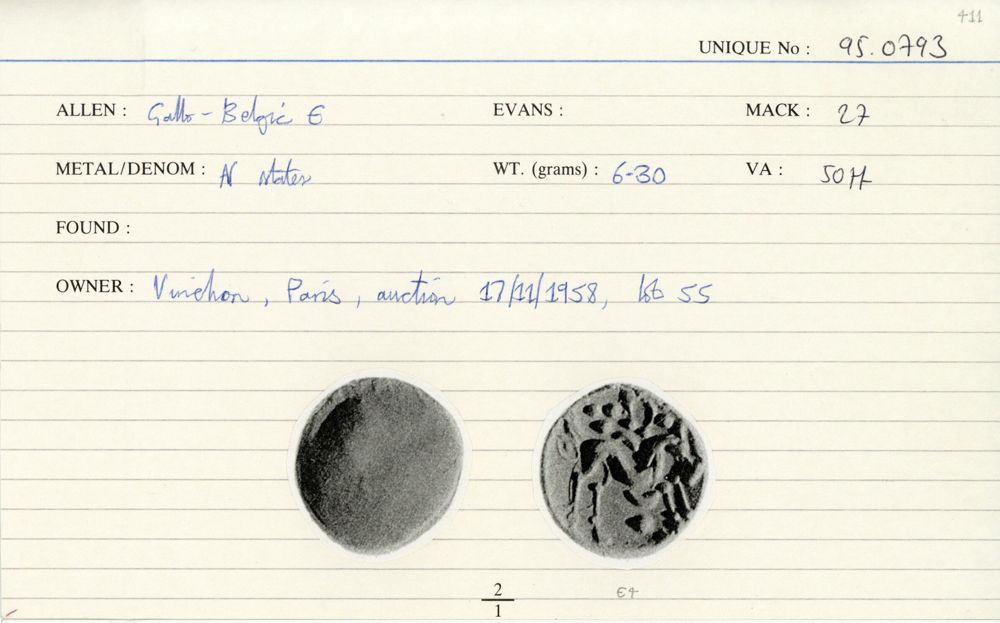 411
UNIQUE No : 95.0793
ALLEN : Gallo-Belgic E EVANS : MACK : 27
METAL/DENOM : N stater WT. (grams) : 6-30 VA :
FOUND :
OWNER : Vinchon, Paris, auction 17/11/1958, lot 55
2
1
E4